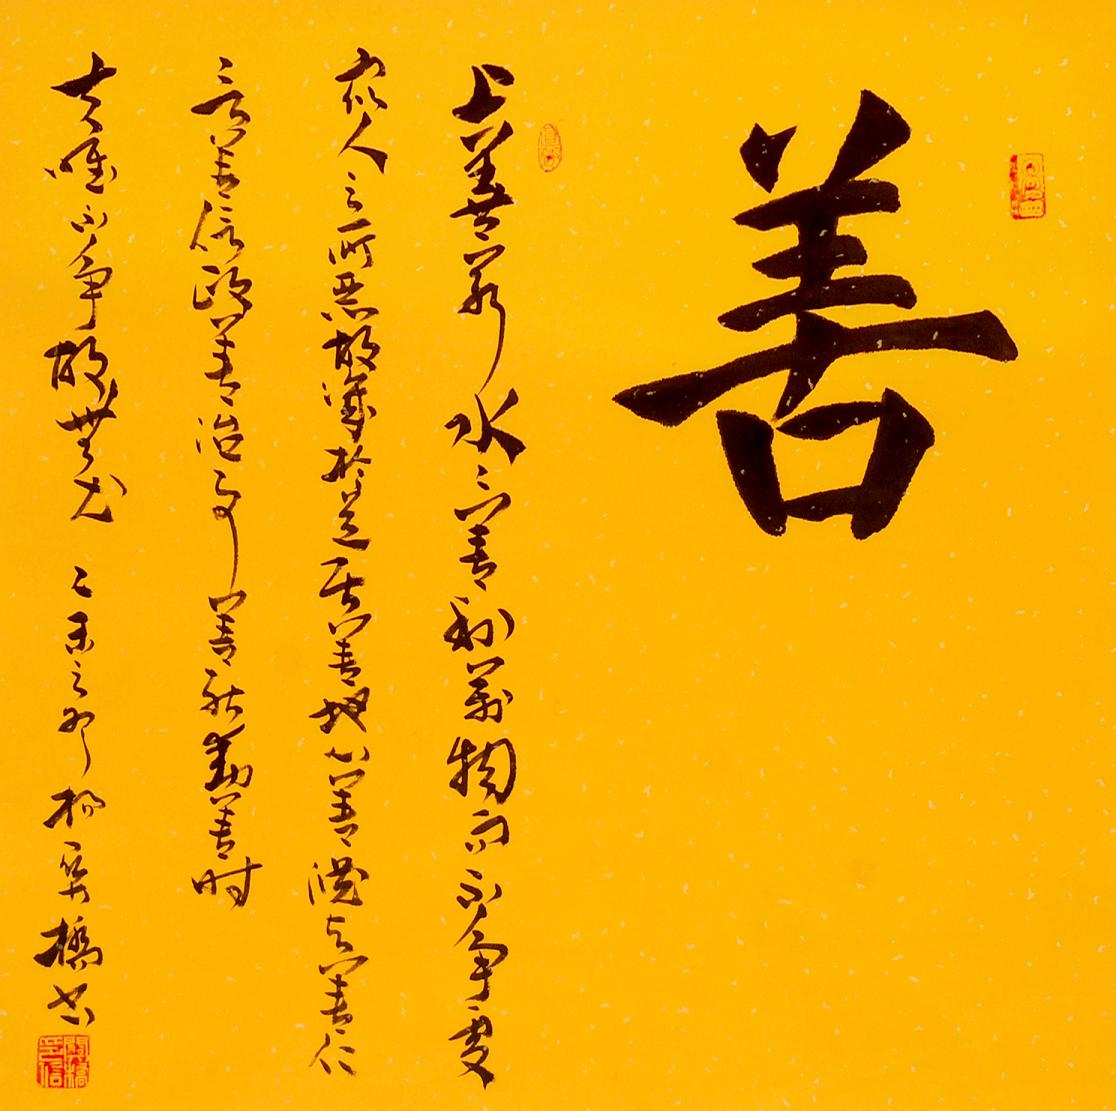 善
上善若水〻善利萬物而不争處
衆人之所惡故幾於道居善地心善淵與善仁
言善信政善治事善能動善時
夫唯不争故無尤 乙未之 橋書